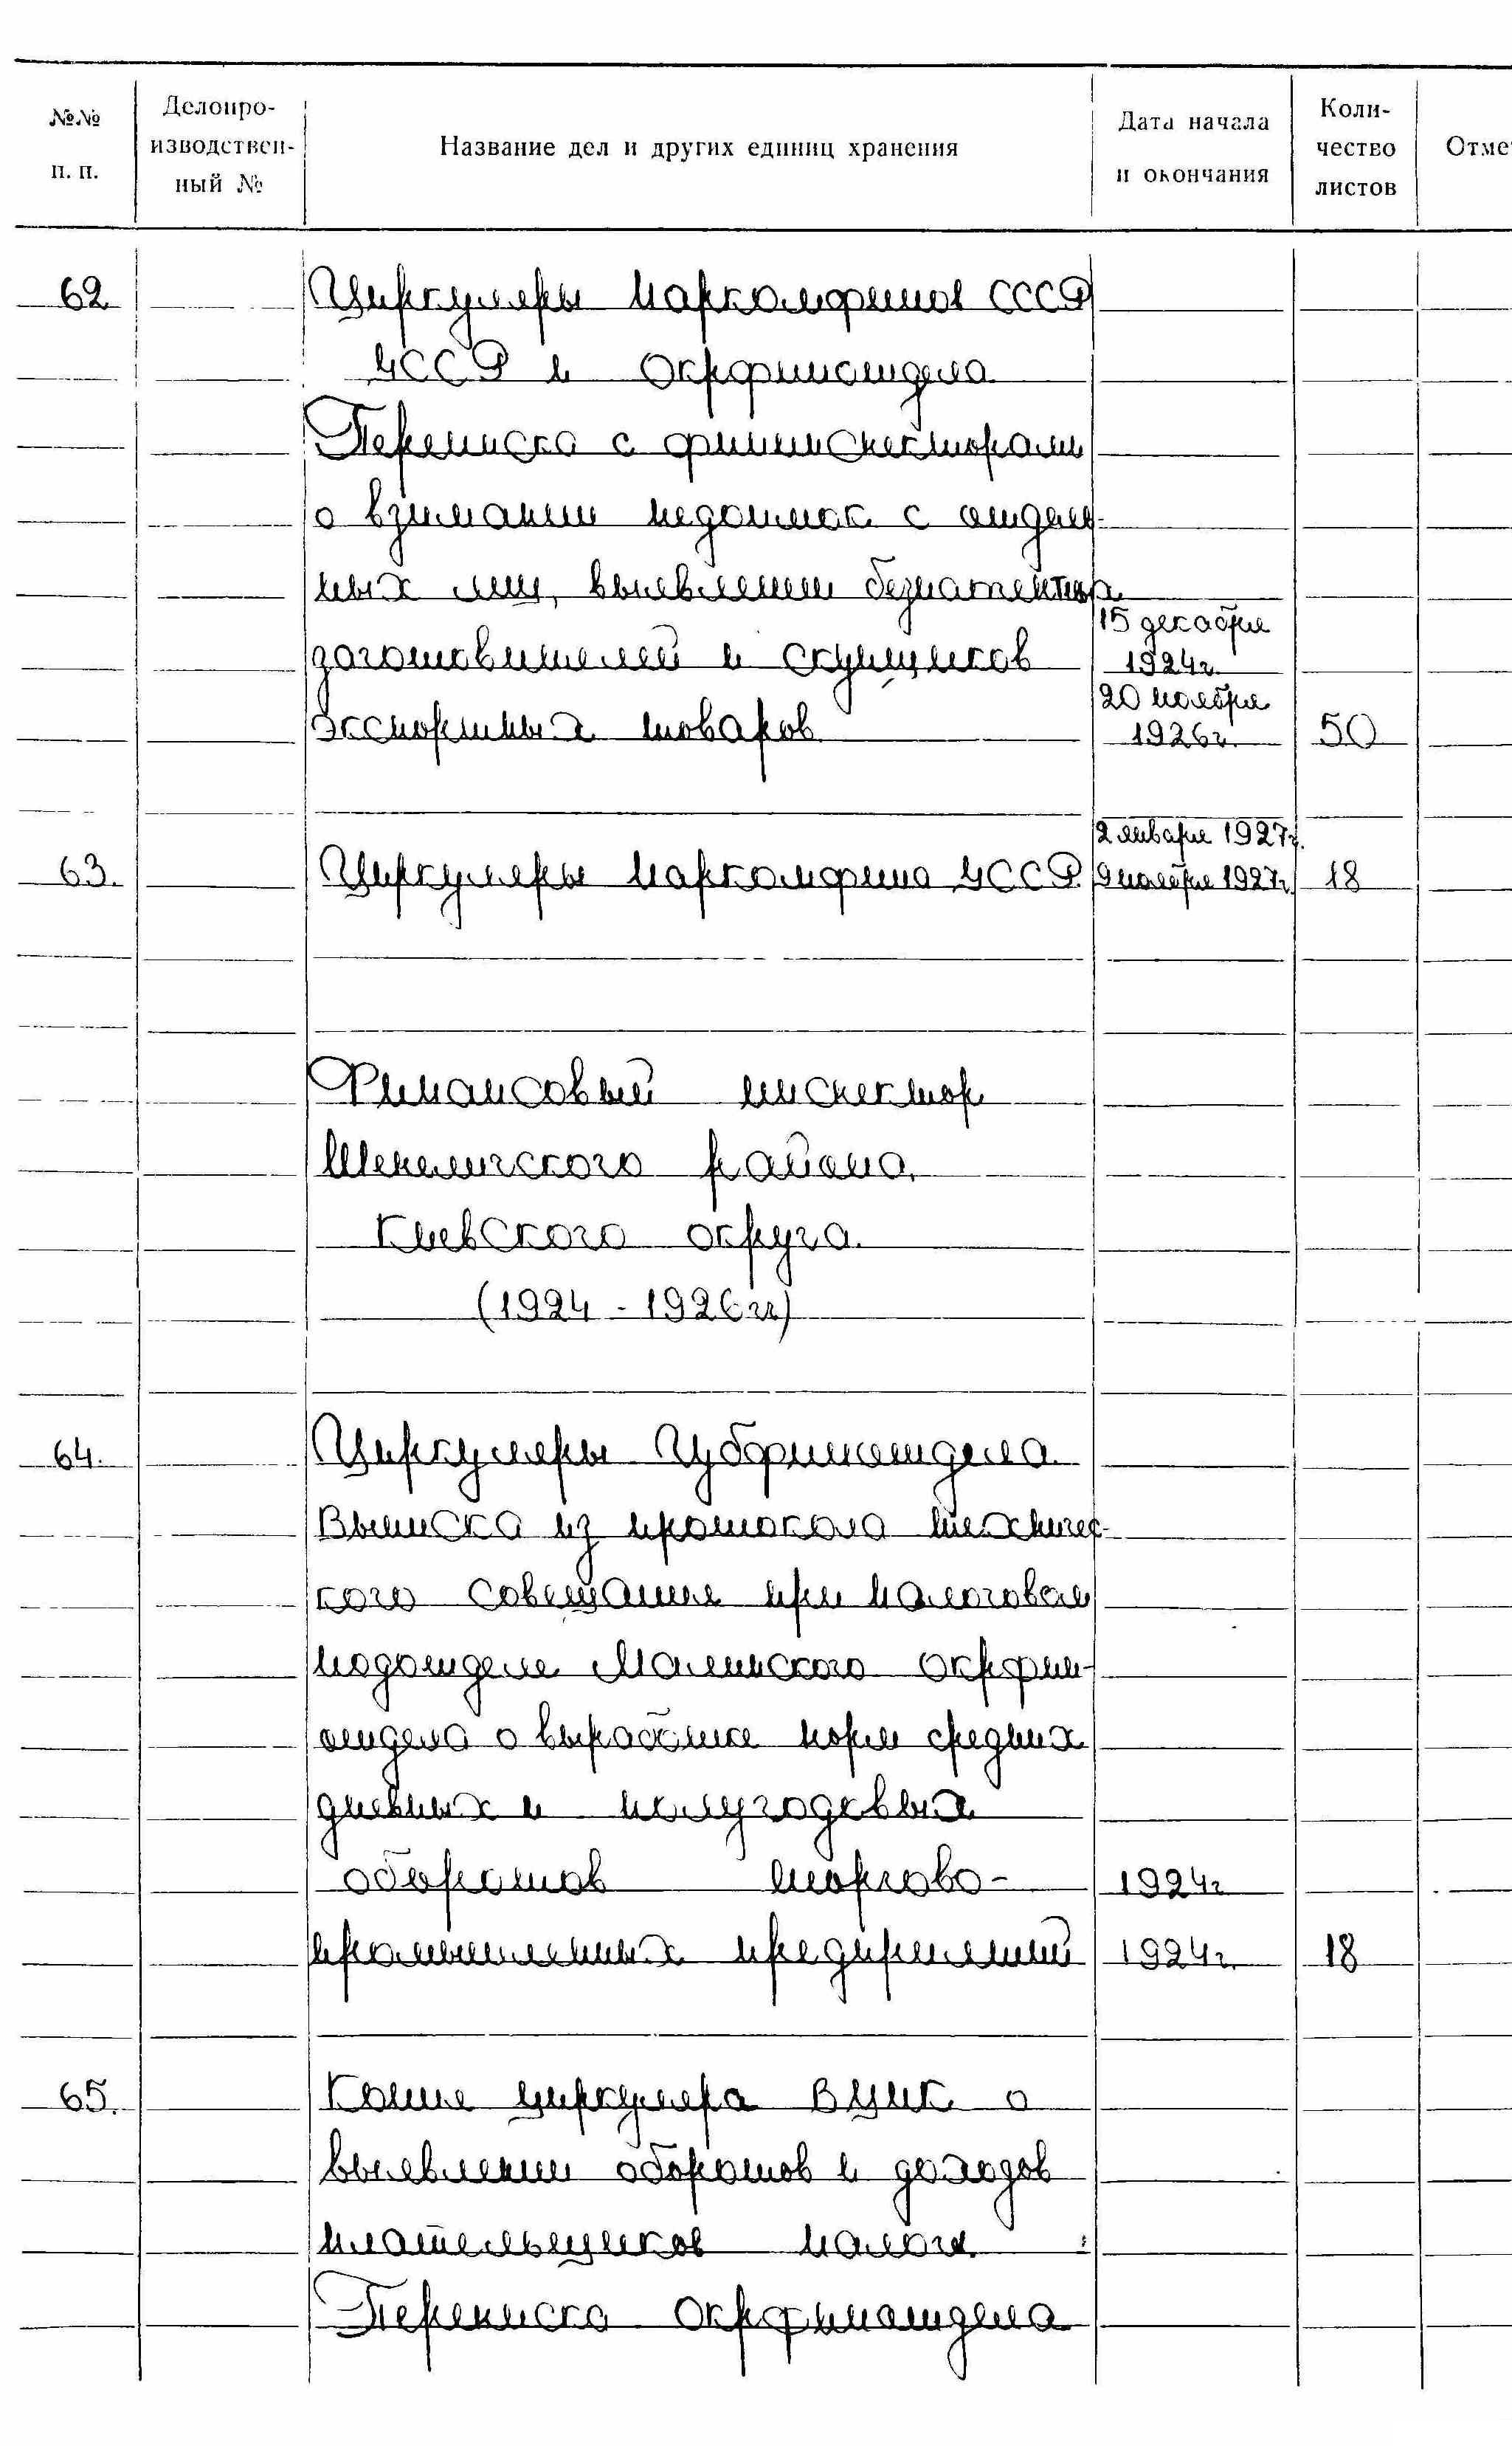 №№ п. п.
Делопро-
изводствен-
ный №
Название дел и других единиц хранения
Дата начала
и окончания
Коли-
чество
листов
Отме
62 Циркуляры Наркомфинов СССР
УССР и Окрфинотдела
Переписка с фининспекторами
о взимании недоимок с отдель-
ных лиц, выявлении безпатентных
15 декабря
заготовителей и скупщиков 1924г.
20 ноября
экспортных товаров 1926г. 50
2 января 1927г.
63. Циркуляры Наркомфина УССР 9 ноября 1927г. 18
Финансовый инспектор
района
Киевского округа
(1924 - 1926 гг)
64. Циркуляры Губфинотдела
Выписка из протокола техничес-
кого совещания при налоговом
подотделе Малинского окрфин-
отдела о выработке норм средних
дневных и полугодовых
оборотов торгово- 1924г
промышленных предприятий 1924г. 18
65. Копия циркуляра ВУЦИК о
выявлении оборотов и доходов
плательщиков налога.
Переписка Окрфинотдела